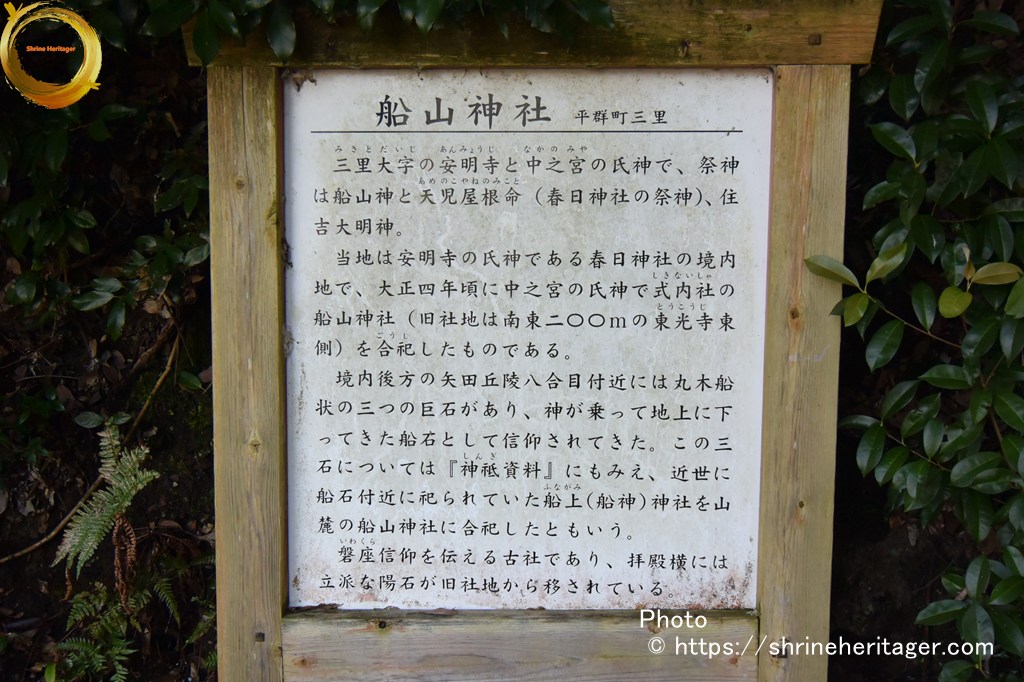 Shrine Heritager
船山神社 平群町三里
みさとだいじ あんみょうじ なかのみや
三里大字の安明寺と中之宮の氏神で、祭神
あめのこやねのみこと
は船山神と天児屋根命（春日神社の祭神）、住
吉大明神。
当地は安明寺の氏神である春日神社の境内
しきないしゃ
地で、大正四年頃に中之宮の氏神で式内社の
とうこうじ
船山神社（旧社地は南東二〇〇mの東光寺東
ごうし
側）を合祀したものである。
境内後方の矢田丘陵八合目付近には丸木船
状の三つの巨石があり、神が乗って地上に下
ってきた船石として信仰されてきた。この三
しんぎ
石については『神祗資料』にもみえ、近世に
ふながみ
船石付近に祀られていた船上(船神)神社を山
麓の船山神社に合祀したともいう。
いわくら
磐座信仰を伝える古社であり、拝殿横には
立派な陽石が旧社地から移されている。
Photo
© https://shrineheritager.com